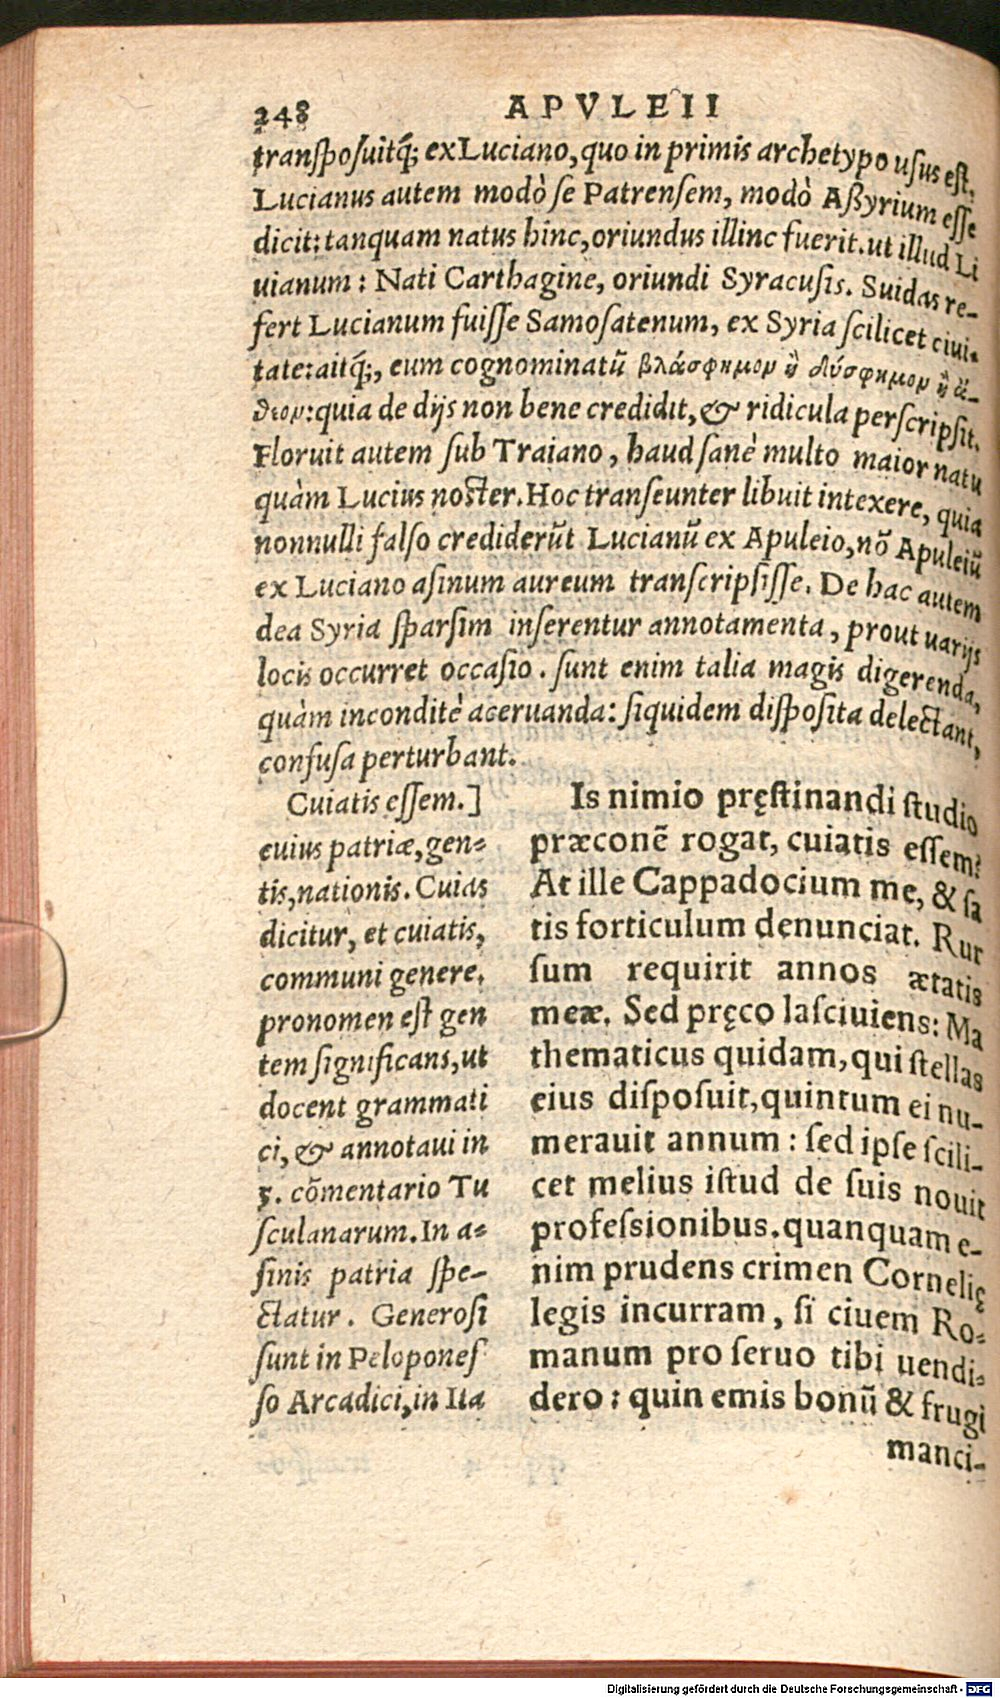 248 APVLEII
transposuitq́; ex Luciano, quo in primis archetypo usus est.
Lucianus autem modò se Patrensem, modò Aßyrium esse
dicit: tanquam natus hinc, oriundus illinc fuerit. ut illud Li
uianum: Nati Carthagine, oriundi Syracusis. Suidas re-
fert Lucianum fuisse Samosatenum, ex Syria scilicet ciui-
tate: aitq́;, eum cognominatũ βλάσφημον ἢ δύσφημον ἢ ἄ-
θεον: quia de dijs non bene credidit, & ridicula perscripsit.
Floruit autem sub Traiano, haud sanè multo maior natu
quàm Lucius noster. Hoc transeunter libuit intexere, quia
nonnulli falso crediderũt Lucianũ ex Apuleio, nõ Apuleiũ
ex Luciano asinum aureum transcripsisse. De hac autem
dea Syria sparsim inserentur annotamenta, prout uarijs
locis occurret occasio. sunt enim talia magis digerenda,
quàm inconditè aceruanda: siquidem disposita delectant,
confusa perturbant.
Cuiatis essem.]
cuius patriæ, gen-
tis, nationis. Cuias
dicitur, et cuiatis,
communi genere.
pronomen est gen
tem significans, ut
docent grammati
ci, & annotaui in
5. cõmentario Tu
sculanarum. In a-
sinis patria spe-
ctatur. Generosi
sunt in Pelopones
so Arcadici, in Ita
Is nimio pręstinandi studio
præconẽ rogat, cuiatis essem?
At ille Cappadocium me, & sa
tis forticulum denunciat. Rur
sum requirit annos ætatis
meæ. Sed pręco lasciuiens: Ma
thematicus quidam, qui stellas
eius disposuit, quintum ei nu-
merauit annum: sed ipse scili-
cet melius istud de suis nouit
professionibus. quanquam e-
nim prudens crimen Cornelię
legis incurram, si ciuem Ro-
manum pro seruo tibi uendi-
dero: quin emis bonũ & frugi
manci-
Digitalisierung gefördert durch die Deutsche Forschungsgemeinschaft - DFG